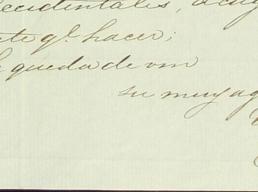 ccidentales, 
ete q.e hacer;
queda de vm
su muy